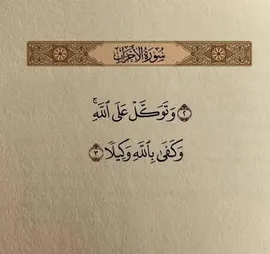 سُورَةُ الأَحْزَابِ
٢ وَتَوَكَّلْ عَلَى ٱللَّهِۚ
وَكَفَىٰ بِٱللَّهِ وَكِيلٗا ٣